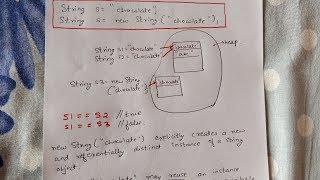 String s = "chocolate";
String s = new String ("chocolate");
String s1 = "chocolate"
String s2 = "chocolate"
heap
chocolate
String s3 = new String
("chocolate")
chocolate
s1 == s2 // true
s1 == s3 // false.
new String ("chocolate") explicitly creates a new
and referentially distinct instance of a string
object.
may reuse an instance